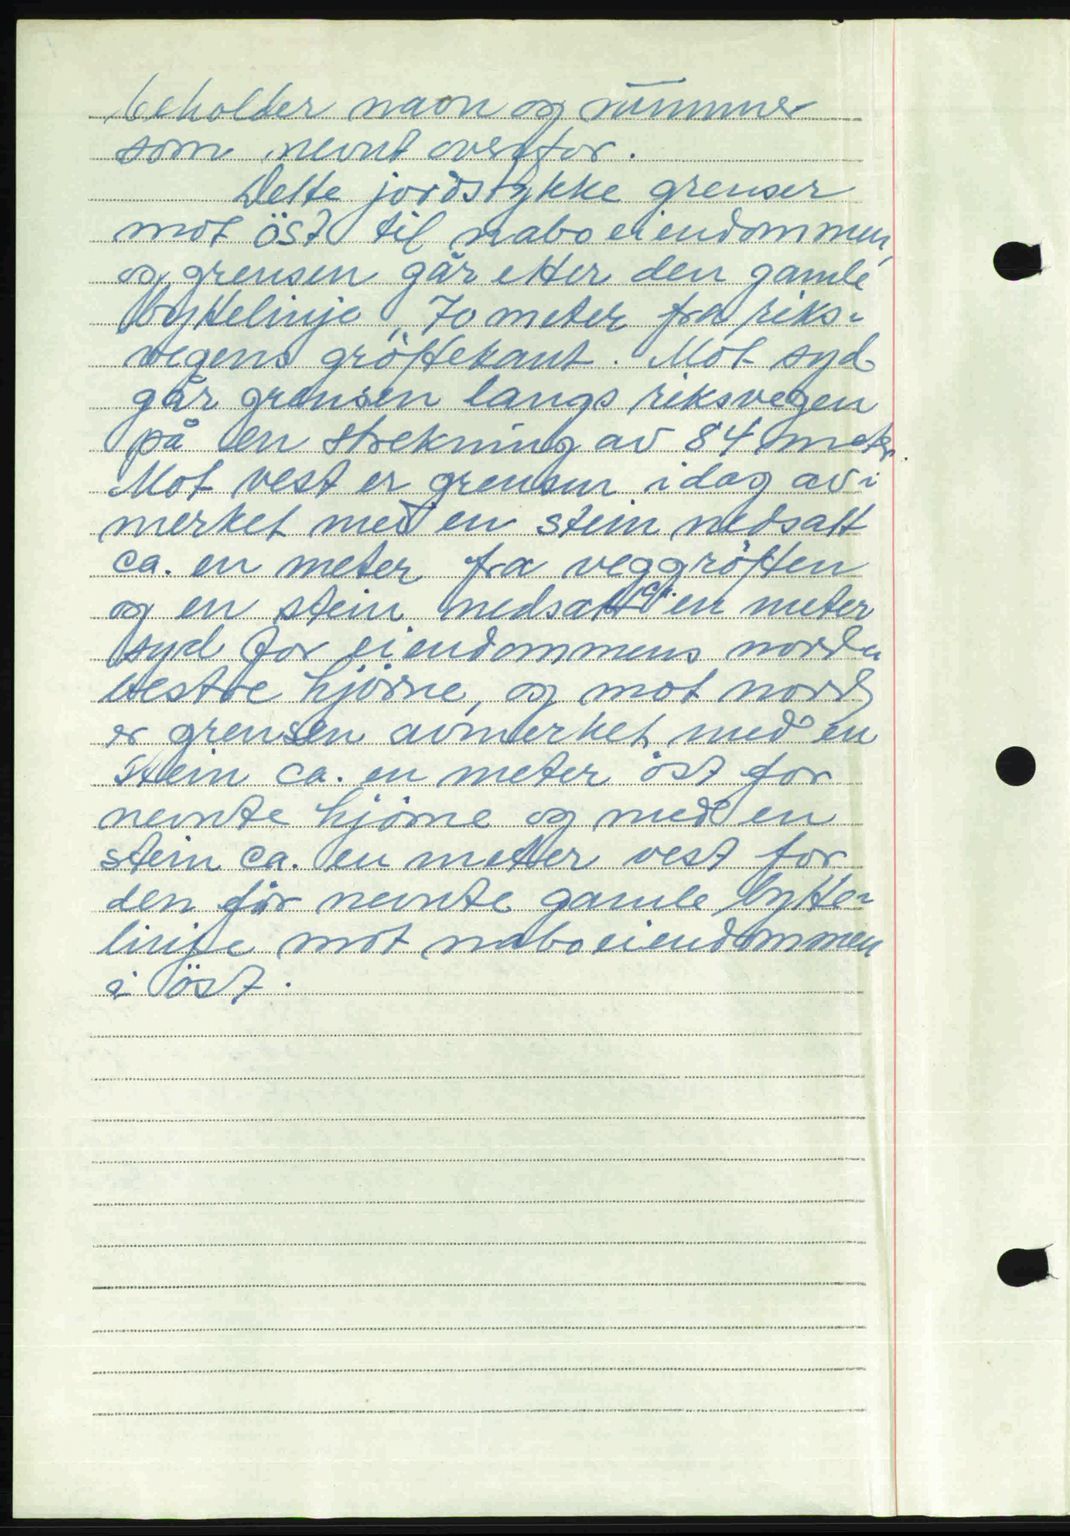 beholder navn og nummer
som nevnt ovenfor.
Dette jordstykke grenser
mot öst til naboeiendommen,
og grensen går etter den gamle
byttelinje, 70 meter fra riks-
vegens gröftekant. Mot syd
går grensen langs riksvegen
på en strekning av 84 meter.
Mot vest er grensen idag av-
merket med en stein nedsatt
ca. en meter fra veggröften
og en stein nedsatt ca. en meter
syd for eiendommens nord-
vestre hjörne, og mot nord
er grensen avmerket med en
stein ca. en meter öst for
nevnte hjörne og med en
stein ca. en meter vest for
den för nevnte gamle bytte-
linje mot naboeiendommen
i öst.